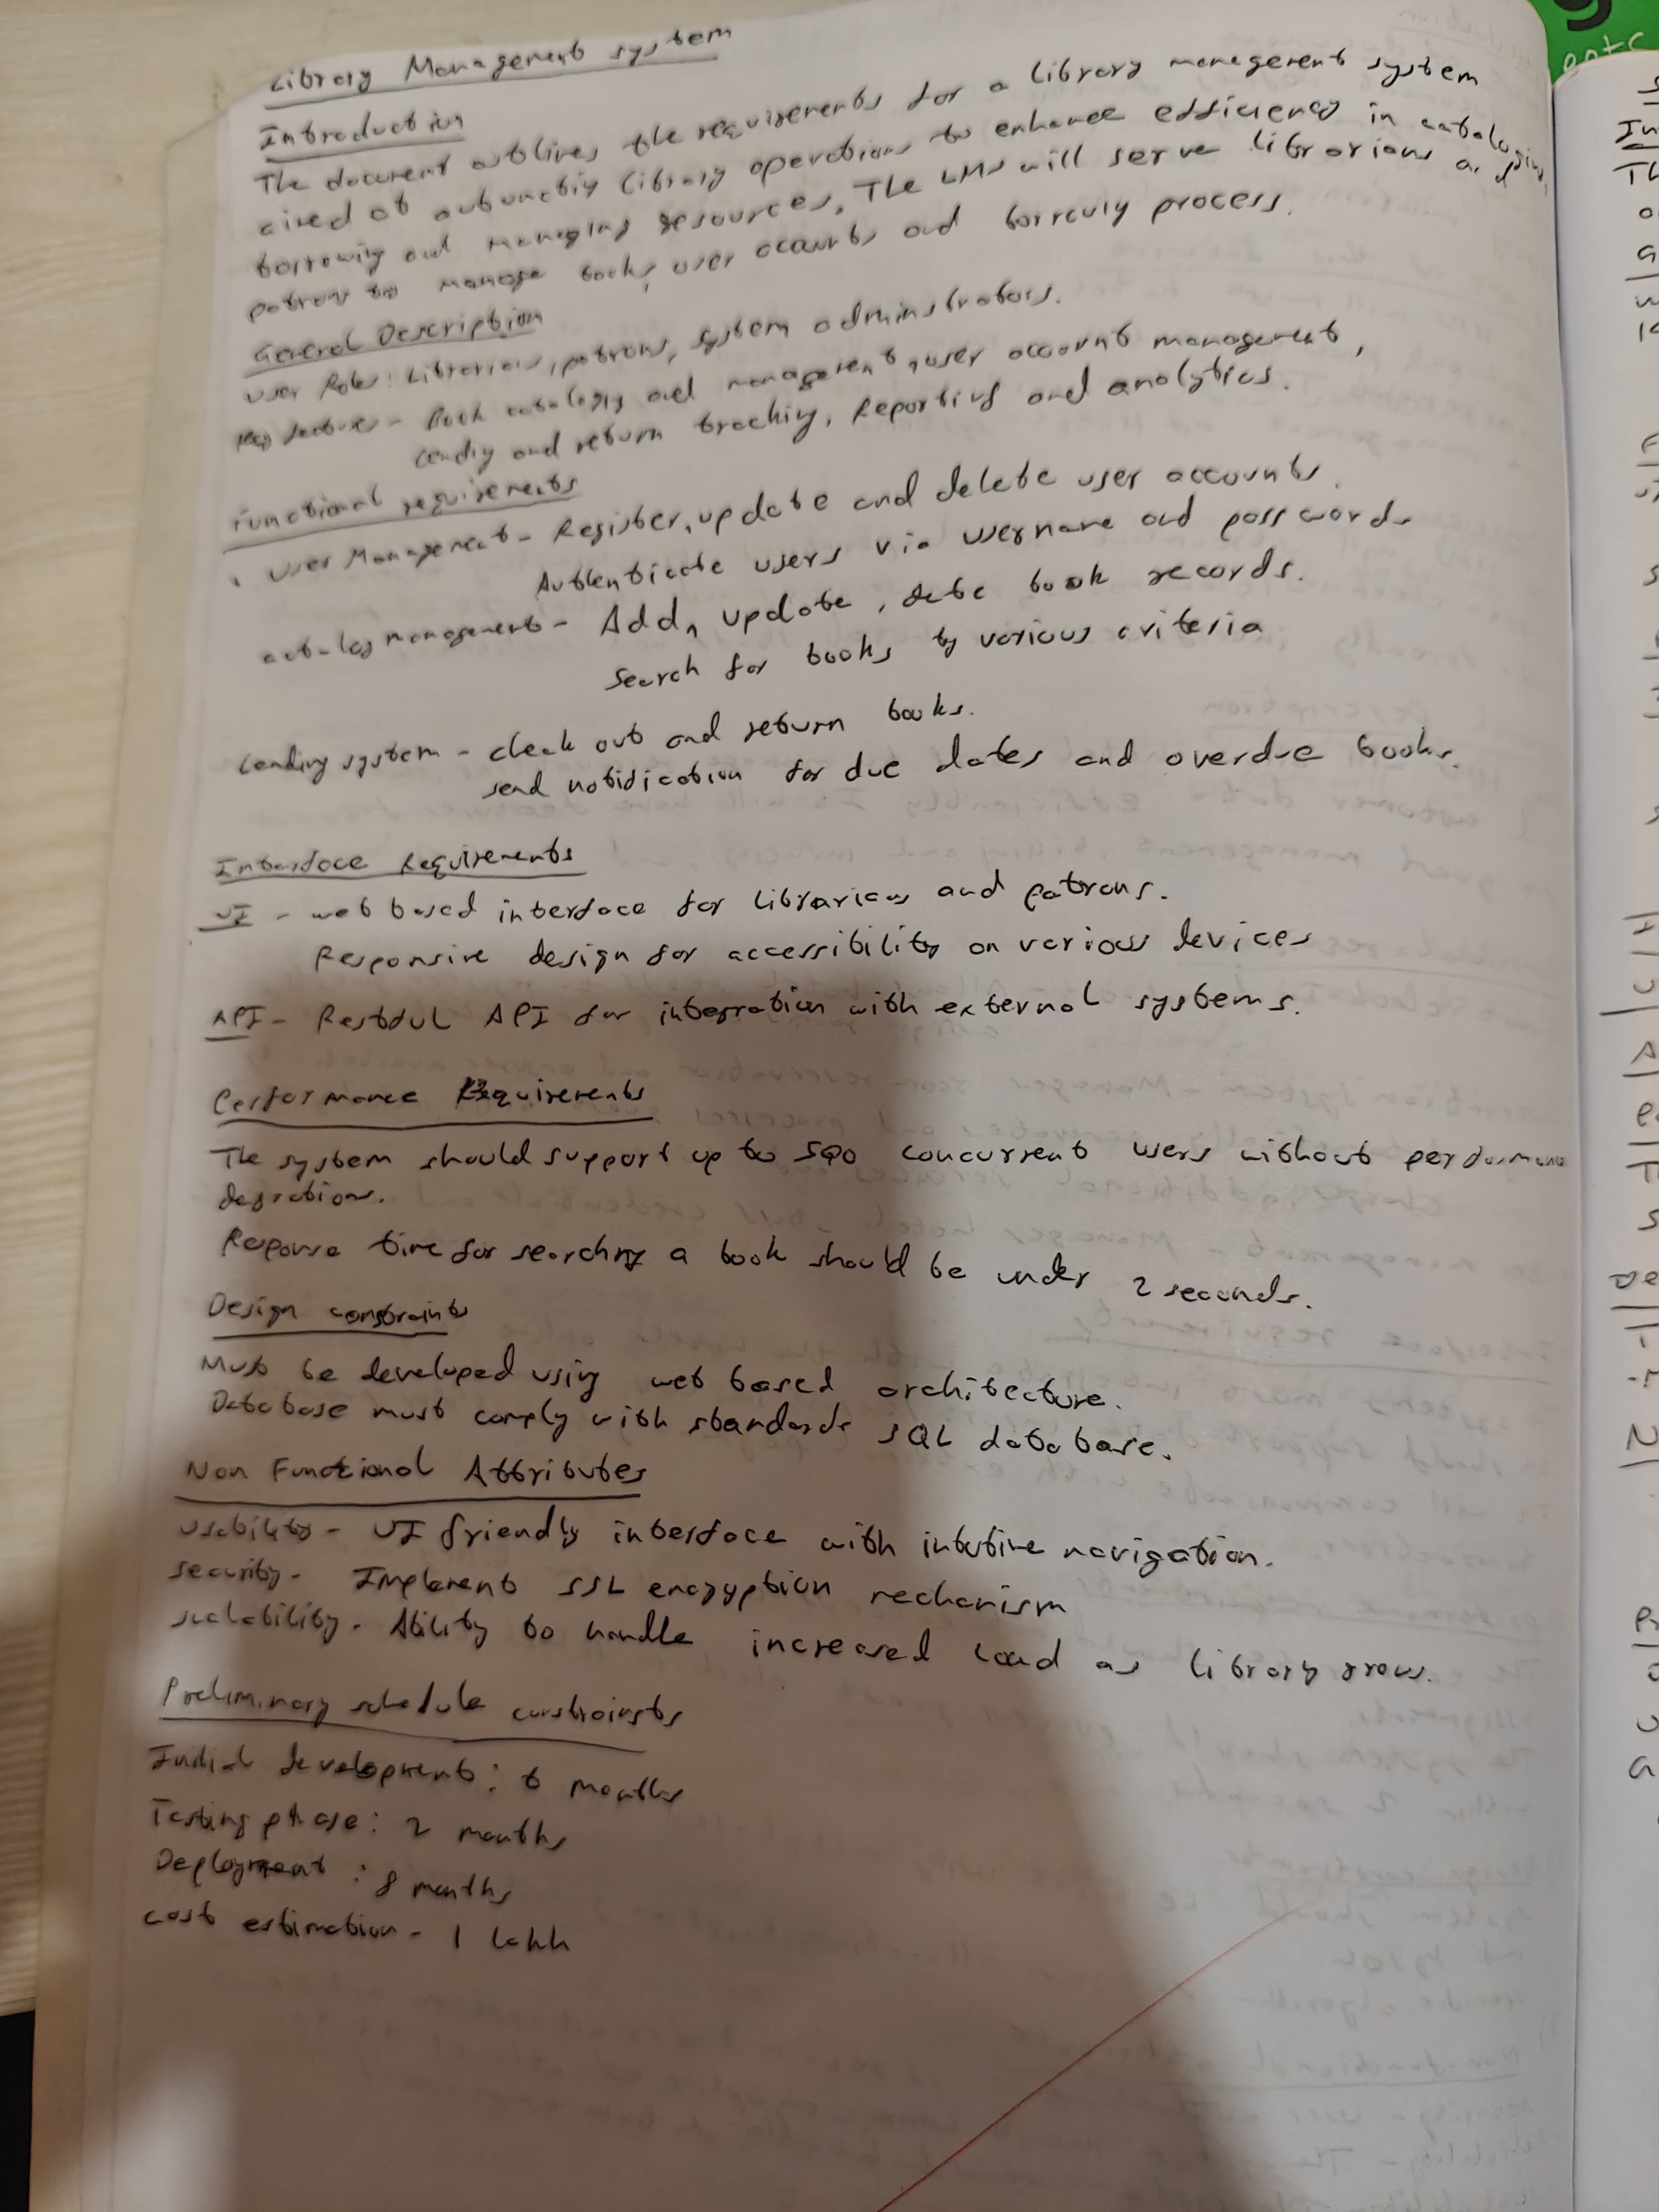 Library Management system
Introduction
The document outlines the requirements for a library management system
aimed at automating library operations to enhance efficiency in cataloging,
borrowing and managing resources. The LMS will serve librarians and
patrons to manage books, user accounts and borrowing process.
General Description
User Roles: Librarians, patrons, system adminstrators.
Key features - Book cataloging and management, user account management,
Lending and return tracking, Reporting and analytics.
Functional requirements
User Management - Register, update and delete user accounts.
Authenticate users via username and passwords
catalog management - Add, update, delete book records.
Search for books by various criteria
Lending system - check out and return books.
send notification for due dates and overdue books.
Interface Requirements
UI - web based interface for librarians and patrons.
Responsive design for accessibility on various devices
API - Restful API for integration with external systems.
Performance Requirements
The system should support up to 500 concurrent users without performance
degration.
Response time for searching a book should be under 2 seconds.
Design constraints
Must be developed using web based architecture.
Database must comply with standards SQL database.
Non Functional Attributes
Usability - UI friendly interface with intutive navigation.
security - Implement SSL encryption mechanism
scalability - Ability to handle increased load as library grows.
Preliminary schedule constraints
Initial development: 6 months
Testing phase: 2 months
Deployment: 8 months
cost estimation - 1 lakh